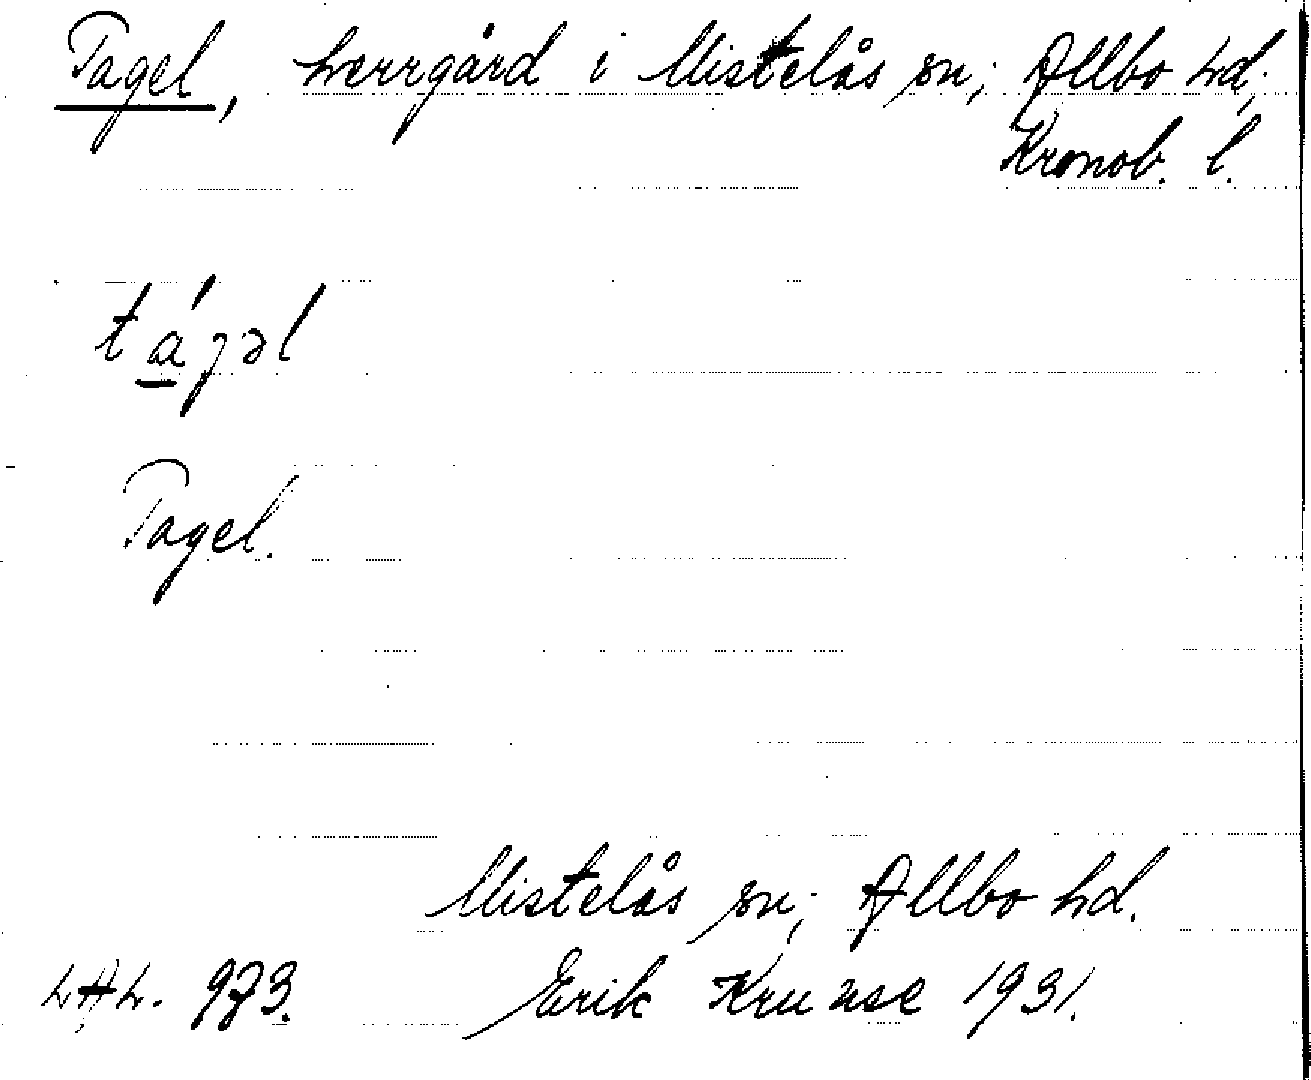 Tagel, herrgård i Mistelås sn; Allbo hd;
Kronob. l.
tágəl
Tagel.
Mistelås sn; Allbo hd.
LAL. 973. Erik Kruuse 1931.